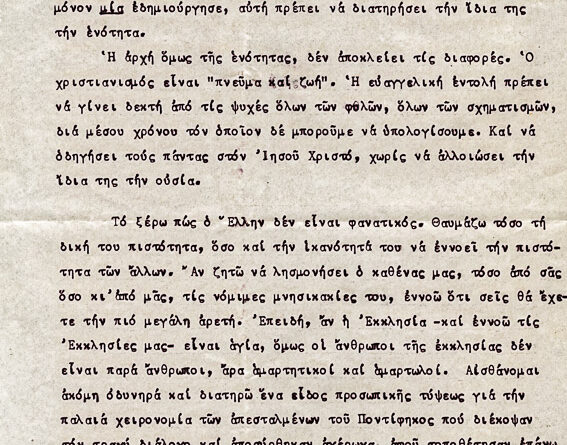 μόνον μία ἐδημιούργησε, αὐτή πρέπει νά διατηρήσει τήν ἴδια της
τήν ἑνότητα.
Ἡ ἀρχή ὅμως τῆς ἑνότητας, δέν ἀποκλείει τίς διαφορές. Ὁ
χριστιανισμός εἶναι "πνεῦμα καί ζωή". Ἡ εὐαγγελική ἐντολή πρέπει
νά γίνει δεκτή ἀπό τίς ψυχές ὅλων τῶν φυλῶν, ὅλων τῶν σχηματισμῶν,
διά μέσου χρόνου τόν ὁποῖον δέ μποροῦμε νά ὑπολογίσουμε. Καί νά
ὁδηγήσει τούς πάντας στόν Ἰησοῦ Χριστό, χωρίς νά ἀλλοιώσει τήν
ἴδια της τήν οὐσία.
Τό ξέρω πώς ὁ Ἕλλην δέν εἶναι φανατικός. Θαυμάζω τόσο τή
δική του πιστότητα, ὅσο καί τήν ἱκανότητά του νά ἐννοεῖ τήν πιστό-
τητα τῶν ἄλλων. Ἄν ζητῶ νά λησμονήσει ὁ καθένας μας, τόσο ἀπό σᾶς
ὅσο κι' ἀπό μᾶς, τίς νόμιμες μνησικακίες του, ἐννοῶ ὅτι σεῖς θά ἔχε-
τε τήν πιό μεγάλη ἀρετή. Ἐπειδή, ἄν ἡ Ἐκκλησία -καί ἐννοῶ τίς
Ἐκκλησίες μας- εἶναι ἁγία, ὅμως οἱ ἄνθρωποι τῆς ἐκκλησίας δέν
εἶναι παρά ἄνθρωποι, ἄρα ἁμαρτητικοί καί ἁμαρτωλοί. Αἰσθάνομαι
ἀκόμη ὀδυνηρά καί διατηρῶ ἕνα εἶδος προσωπικῆς τύψεως γιά τήν
παλαιά χειρονομία τῶν ἀπεσταλμένων τοῦ Ποντίφηκος πού διέκοψαν